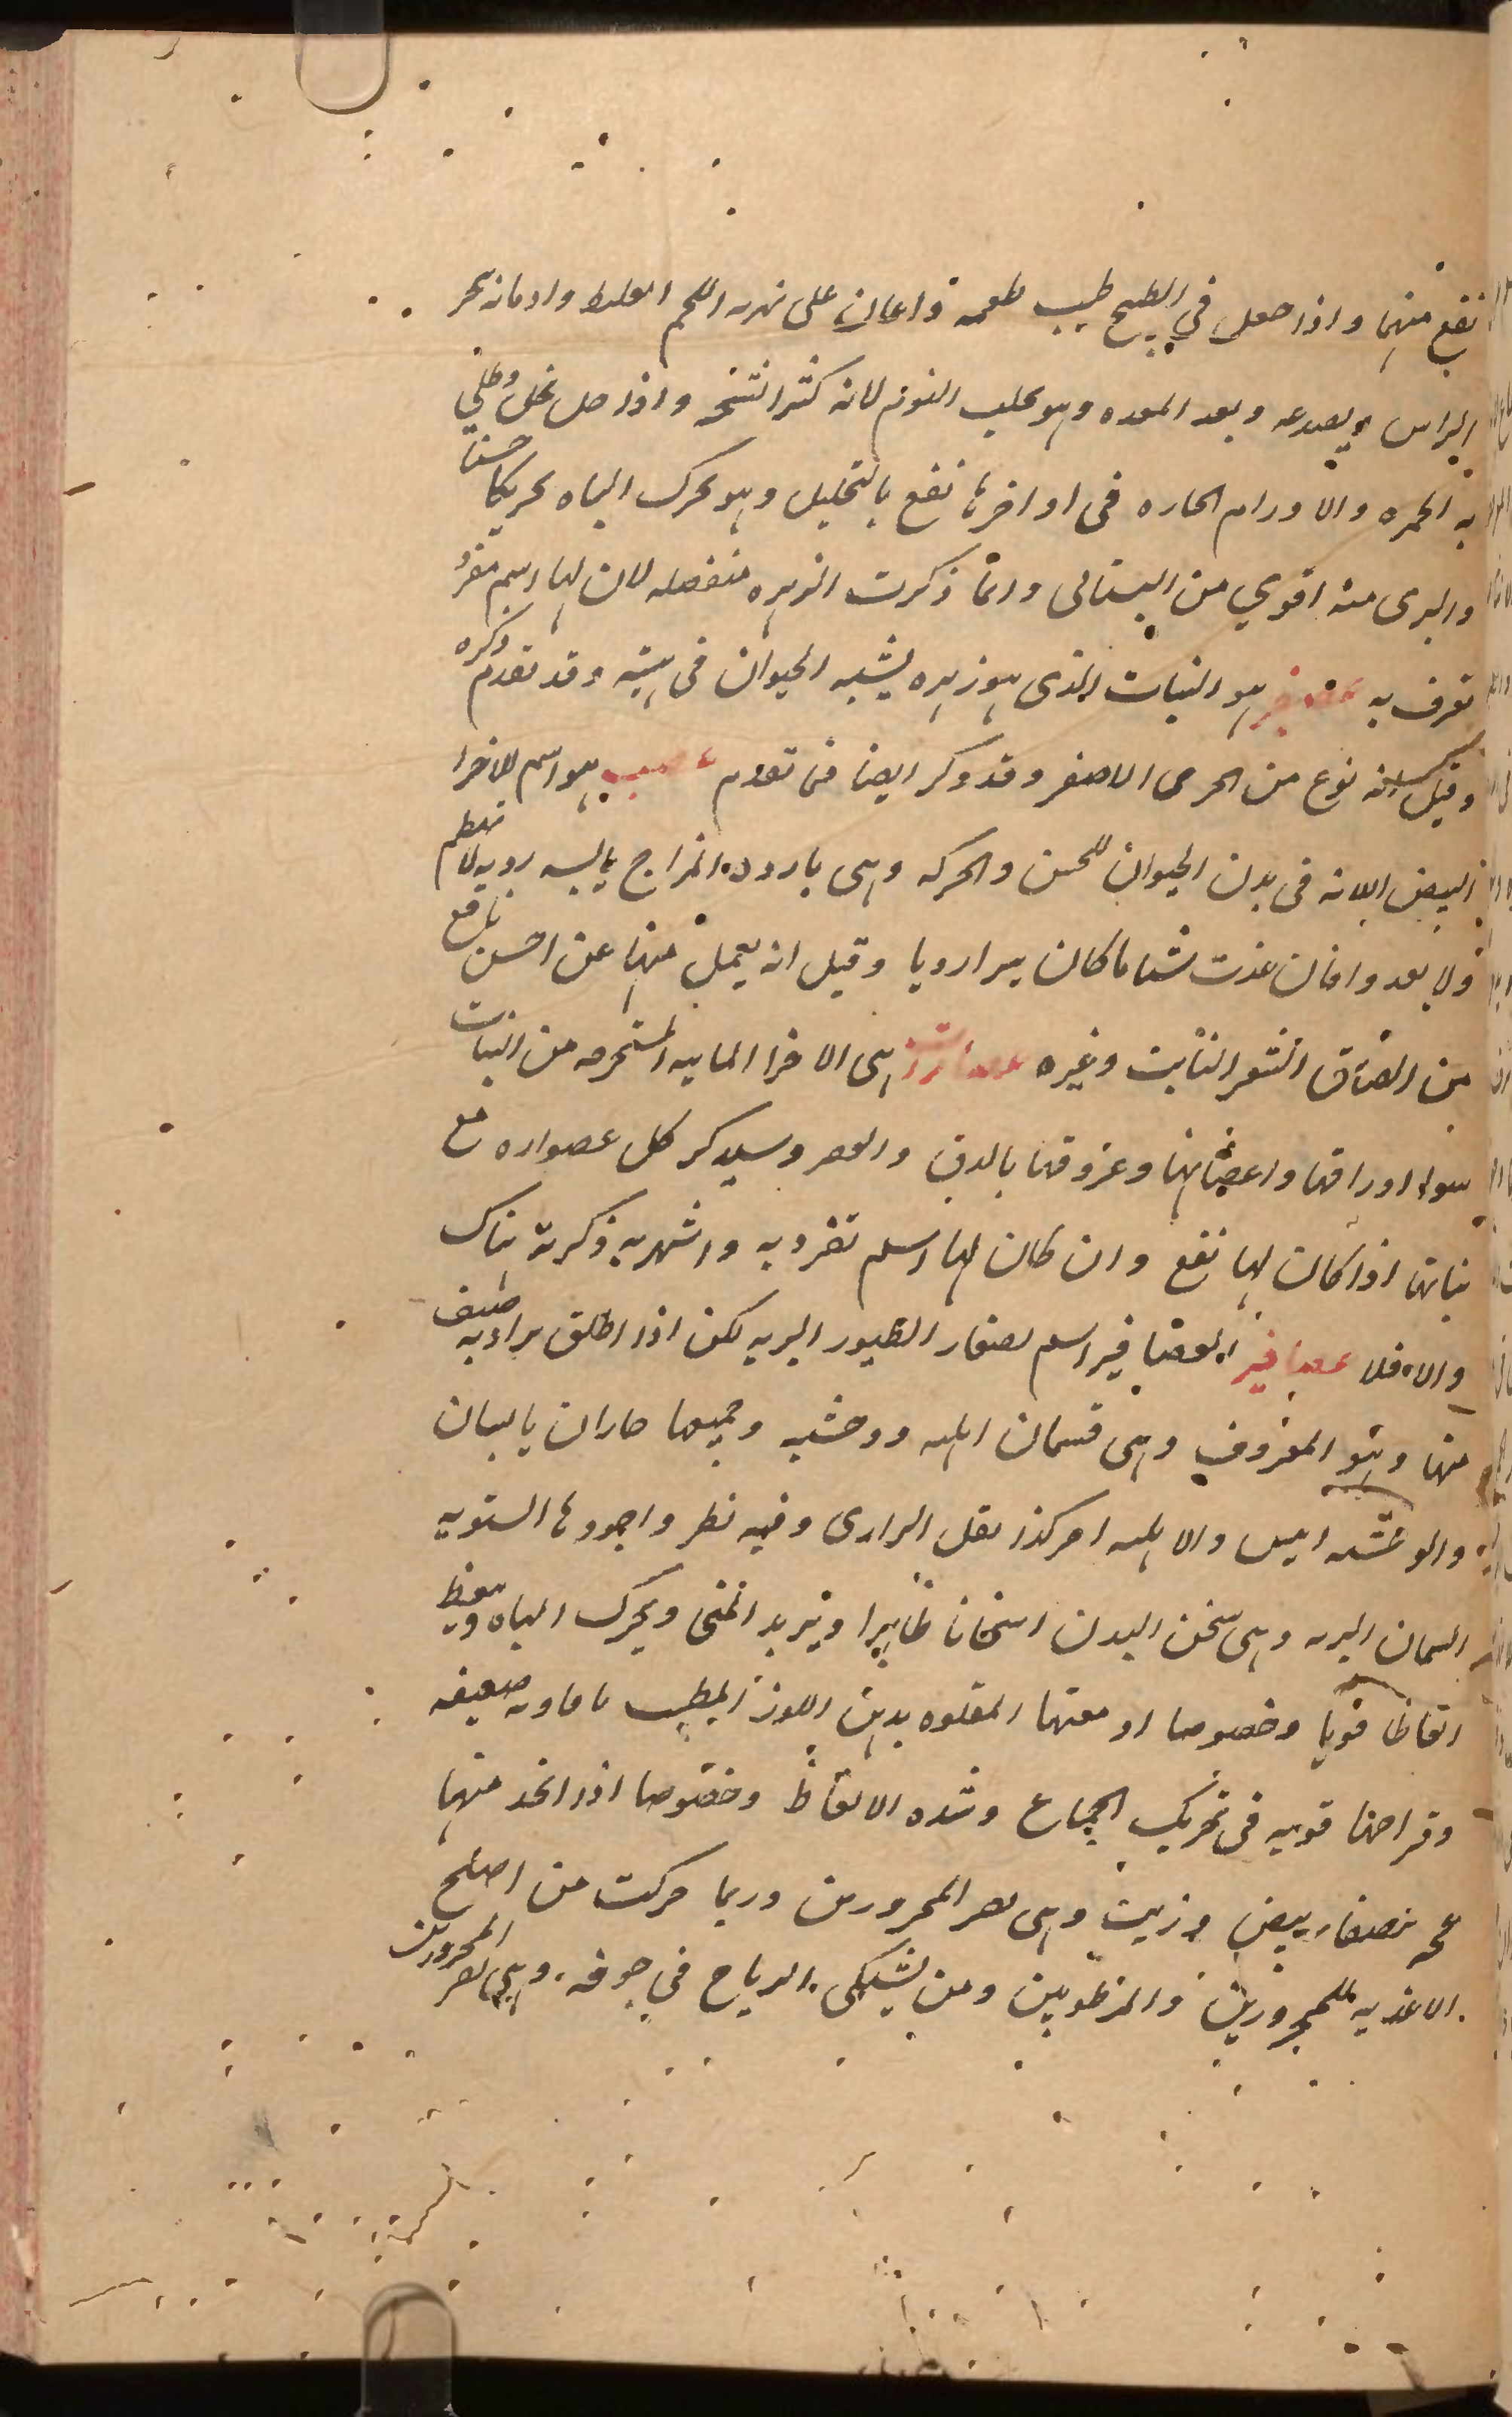 نفع منها واذا جعل في الطبيخ طيب طعمه واعان على تهريه اللحم الغليظ وادمانه يبخر
الراس ويصدعه وبعد المعده وهو يجلب النوم لانه كثير التبخير واذا حل بخل وطلي
به الحمره والاورام الحاره في اواخرها نفع بالتحليل وهو يحرك الباه تحريكا حسنا
والبرى منه اقوي من البستانى وانما ذكرت الزهره منفصله لان لها اسم مفرد
تعرف به عصفر هو النبات الذى هو زهره يشبه الحيوان في هيئته وقد تقدم ذكره
وقيل انه نوع من الحرمل الاصفر وقد ذكر ايضا فى تقدم عصب هو اسم للاجزا
البيض اللدنه في بدن الحيوان للحس والحركه وهى بارده المزاج يابسه رديه لا تنهضم
ولا تغذوا فان غذت شيا ما كان يسيرا رديا وقيل انه يعمل منها عن احسن نافع
من الصاق الشعر النابت وغيره عصارات هى الاجزا المايه المستخرجه من النبات
سواء اوراقها واغصانها وعروقها بالدق والعصر وسيذكر كل عصاره مع
نباتها اذا كان لها نفع وان كان لها اسم تفرد به واشهر به ذكرته هناك
والا فلا عصافير العصافير اسم لصغار الطيور البريه لكن اذا اطلق يراد به صنف
منها وهو المعروف وهى قسمان اهليه ووحشيه وجميعها حاران يابسان
والوحشيه ايبس والاهليه احر كذا نقل الرازى وفيه نظر واجودها الشتويه
السمان البريه وهى تسخن البدن اسخانا ظاهرا وتزيد المنى ويحرك الباه وينعظ
انعاظا قويا وخصوصا ادمغتها المقلوه بدهن اللوز المطيب بافاويه ضعيفه
وفراخها قويه فى تحريك الجماع وشده الانعاظ وخصوصا اذا اتخذ منها
عجه بصفار بيض وزيت وهى تضر المحرورين وربما حركت من اصلح
الاغذيه للمحرورين والمرطوبين ومن يشتكى الرياح في جوفه وهى تضر المحرورين